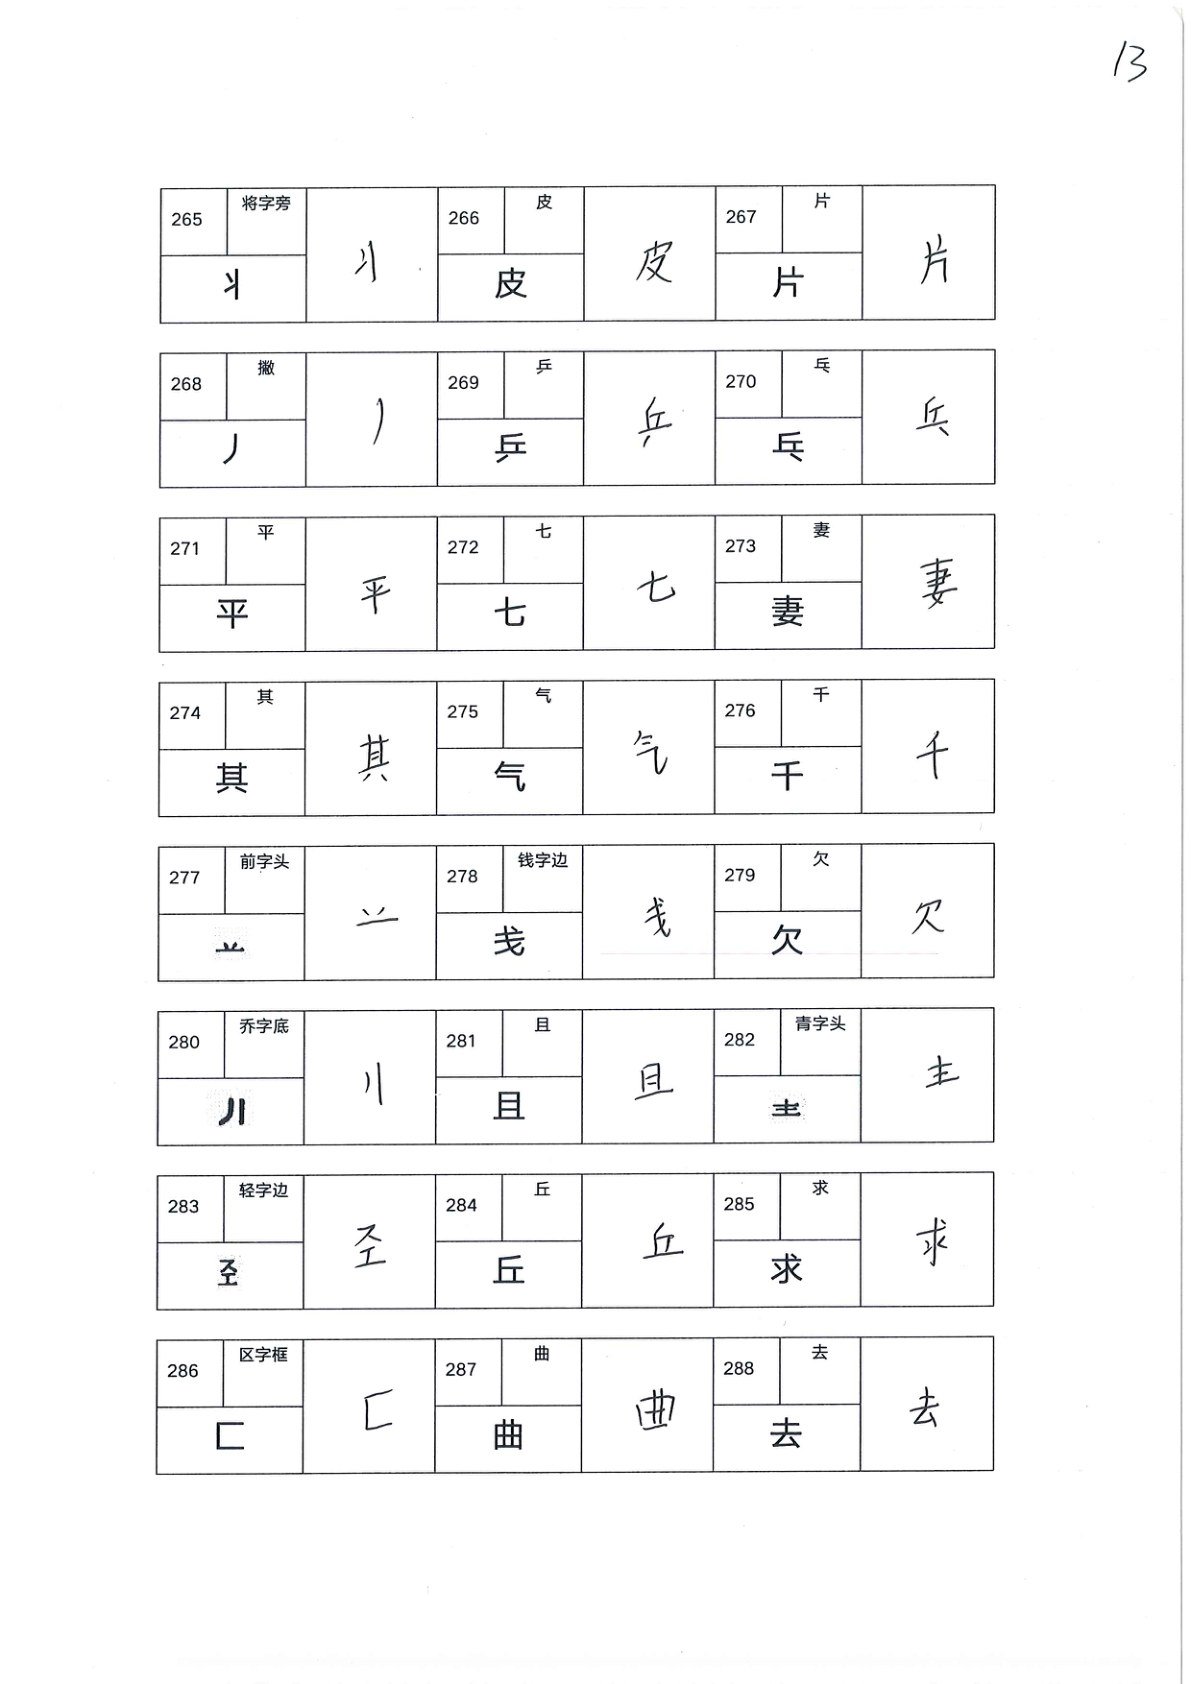 13
265 将字旁 丬 丬 266 皮 皮 皮 267 片 片 片
268 撇 丿 丿 269 乒 乒 乒 270 乓 乓 乓
271 平 平 平 272 七 七 七 273 妻 妻 妻
274 其 其 其 275 气 气 气 276 千 千 千
277 前字头 䒑 䒑 278 钱字边 戋 戋 279 欠 欠 欠
280 乔字底 丿丨 丿丨 281 且 且 且 282 青字头 龶 龶
283 轻字边 𢀖 𢀖 284 丘 丘 丘 285 求 求 求
286 区字框 匚 匚 287 曲 曲 曲 288 去 去 去